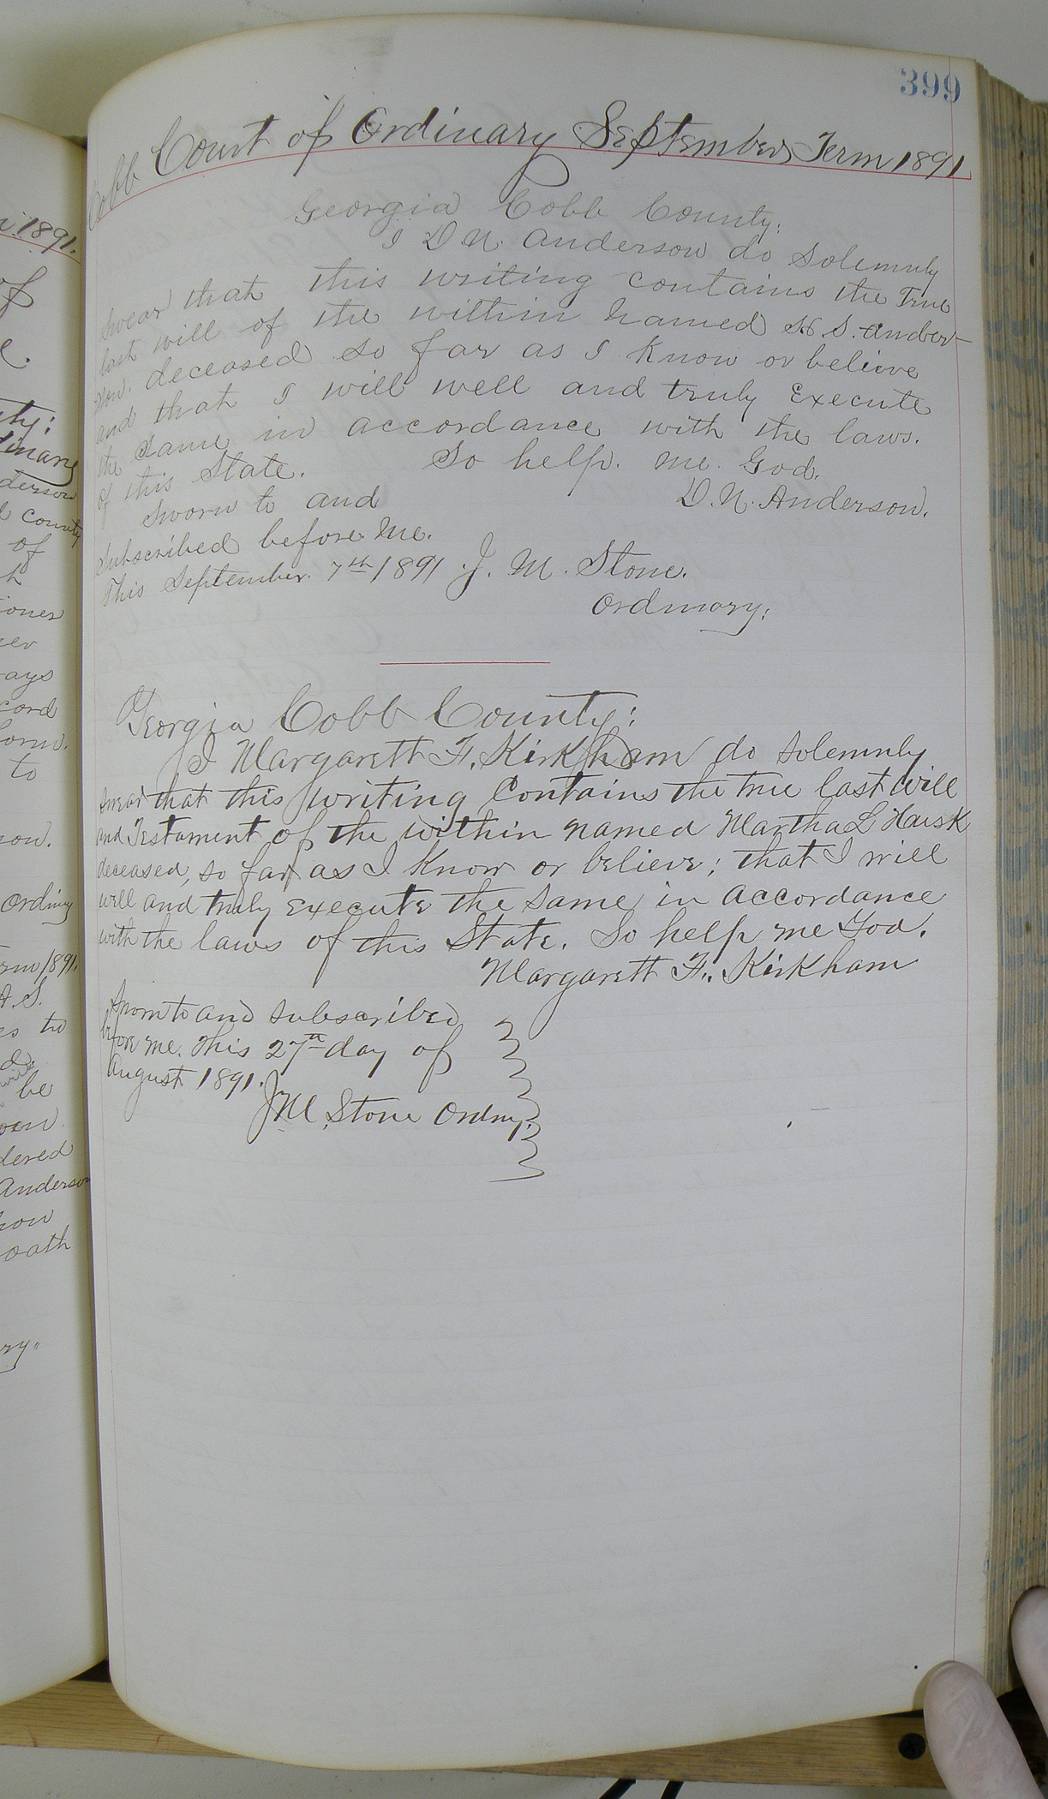 399
Cobb Court of Ordinary September Term 1891
Georgia Cobb County;
I D. N. Anderson do solemnly
swear that this writing contains the true
last will of the within named S. Ander-
son. deceased so far as I know or believe
and that I will well and truly Execute
the same in accordance with the laws.
of this State. So help. me. God.
Sworn to and D. N. Anderson.
Subscribed before Me.
This September. 7th 1891 J. M. Stone.
Ordinary;
Georgia Cobb County:
I Margarett F. Kirkham do solemnly
swear that this writing Contains the true last will
and Testament of the within named Martha L
deceased, so far as I Know or believe; that I will
well and truly execute the same in accordance
with the laws of this State. So help me God.
Margarett F. Kirkham
Sworn to and subscribed
before me. this 27th day of
August 1891.
J M Stone Ordny.
1891.
of
County
of
ays
cord
to
Ordiny
1891
A. S.
to
be
dered
Anderson
oath